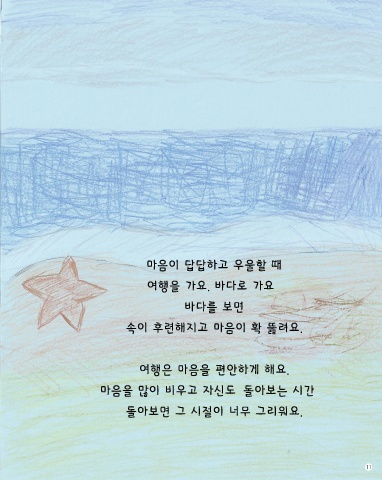 마음이 답답하고 우울할 때
여행을 가요. 바다로 가요
바다를 보면
속이 후련해지고 마음이 확 뚫려요.
여행은 마음을 편안하게 해요.
마음을 많이 비우고 자신도 돌아보는 시간
돌아보면 그 시절이 너무 그리워요.
11